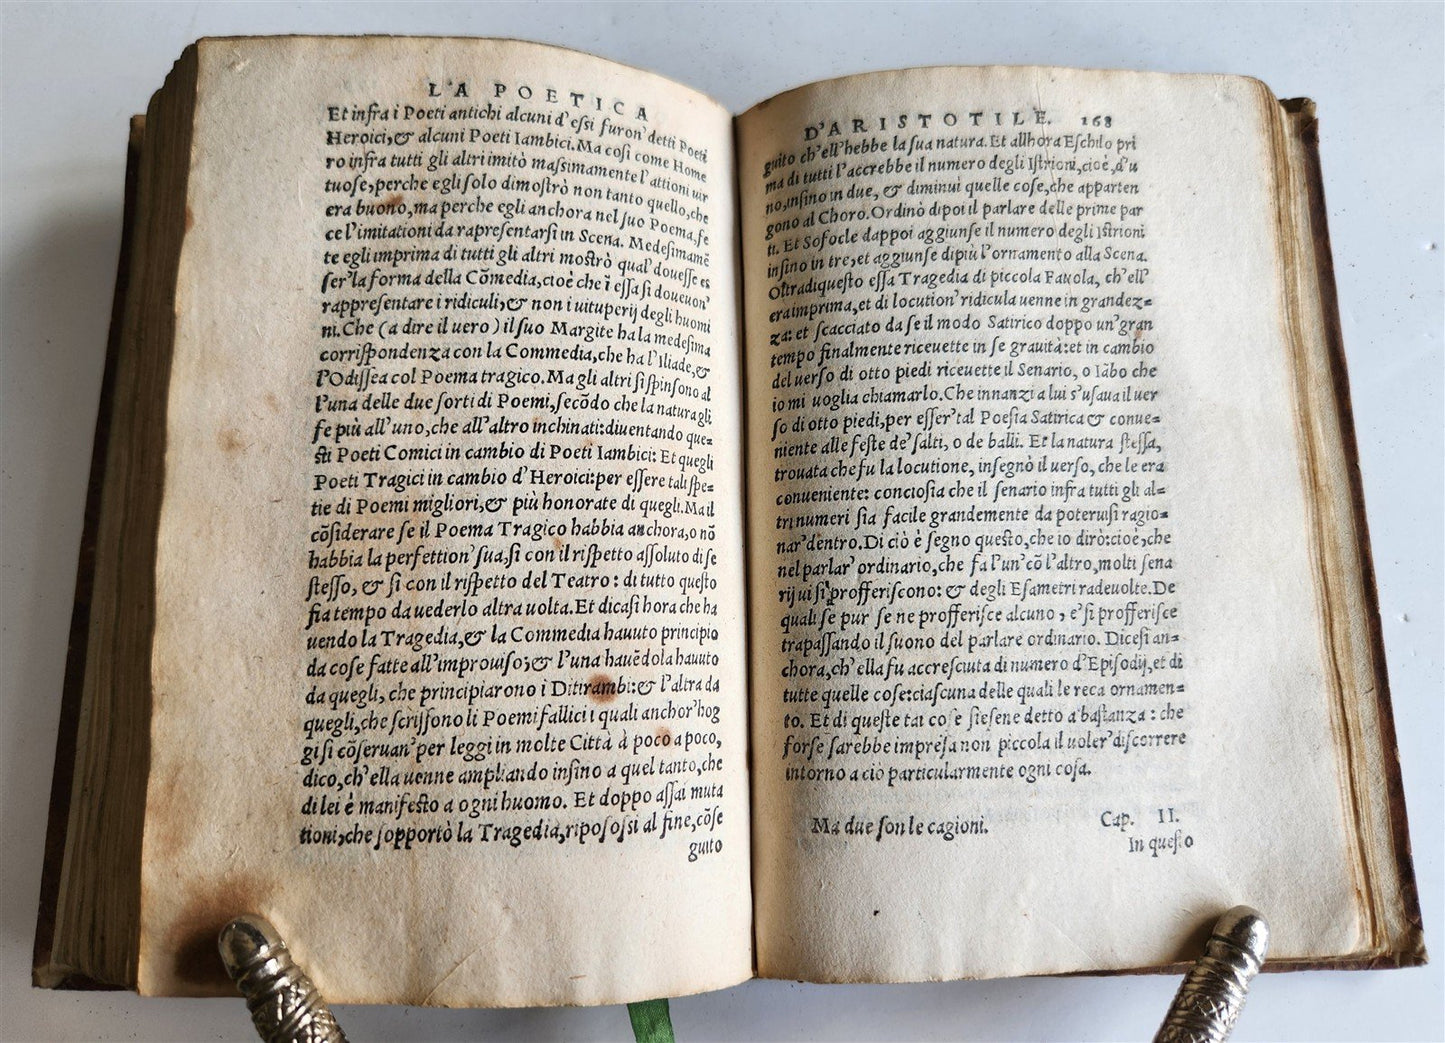 L'A POETICA
Et infra i Poeti antichi alcuni d'eſsi furon' detti Poeti
Heroici,& alcuni Poeti Iambici. Ma coſi come Home
ro infra tutti gli altri imitò maſsimamente l'attioni uir
tuoſe,perche egli ſolo dimoſtrò non tanto quello,che
era buono,ma perche egli anchora nel ſuo Poema,fe
ce l'imitationi da rapreſentarſi in Scena. Medeſimamē
te egli imprima di tutti gli altri moſtrò qual' doueſſe eſ
ſer' la forma della Cōmedia,cioè che ī eſſa ſi doueuon'
rappreſentare i ridiculi,& non i uituperij degli huomi
ni.Che (a dire il uero) il ſuo Margite ha la medeſima
corriſpondenza con la Commedia,che ha l'Iliade,&
l'Odiſſea col Poema tragico.Ma gli altri ſi ſpinſono al
l'una delle due ſorti di Poemi,ſecōdo che la natura gli
fe più all'uno,che all'altro inchinati:diuentando que=
ſti Poeti Comici in cambio di Poeti Iambici: Et quegli
Poeti Tragici in cambio d'Heroici:per eſſere tali ſpe=
tie di Poemi migliori,& più honorate di quegli.Ma il
cōſiderare ſe il Poema Tragico habbia anchora,o nō
habbia la perfettion' ſua,ſi con il riſpetto aſſoluto di ſe
ſteſſo, & ſi con il riſpetto del Teatro: di tutto queſto
fia tempo da uederlo altra uolta.Et dicaſi hora che ha
uendo la Tragedia,& la Commedia hauuto principio
da coſe fatte all'improuiſo;& l'una hauēdola hauuto
da quegli, che principiarono i Ditirambi:& l'altra da
quegli,che ſcriſſono li Poemi fallici i quali anchor'hog
gi ſi cōſeruan' per leggi in molte Città à poco a poco,
dico,ch'ella uenne ampliando inſino a quel tanto,che
di lei è manifeſto a ogni huomo. Et doppo aſſai muta
tioni,che ſopportò la Tragedia,ripoſoſsi al fine,cōſe
guito
D'ARISTOTILE. 168
guito ch'ell'hebbe la ſua natura.Et allhora Eſchilo pri
ma di tutti l'accrebbe il numero degli Iſtrioni,cioè,d'u
no,inſino in due, & diminuì quelle coſe,che apparten
gono al Choro.Ordinò dipoi il parlare delle prime par
ti. Et Sofocle dappoi aggiunſe il numero degli Iſtrioni
inſino in tre,et aggiunſe dipiù l'ornamento alla Scena.
Oltradiqueſto eſſa Tragedia di piccola Fauola, ch'ell'
era imprima,et di locution' ridicula uenne in grandez=
za: et ſcacciato da ſe il modo Satirico doppo un'gran
tempo finalmente riceuette in ſe grauità:et in cambio
del uerſo di otto piedi riceuette il Senario, o Iābo che
io mi uoglia chiamarlo.Che innanzi a lui s'uſaua il uer
ſo di otto piedi,per eſſer'tal Poeſia Satirica & conue=
niente alle feſte de'ſalti, o de balli. Et la natura ſteſſa,
trouata che fu la locutione, inſegnò il uerſo, che le era
conueniente: conciosia che il ſenario infra tutti gli al=
tri numeri ſia facile grandemente da poteruiſi ragio=
nar'dentro.Di ciò è ſegno queſto,che io dirò:cioè,che
nel parlar' ordinario,che fa l'un'cō l'altro,molti ſena
rij ui ſi profferiſcono: & degli Eſametri radeuolte.De
quali ſe pur ſe ne profferiſce alcuno, e'ſi profferiſce
trapaſſando il ſuono del parlare ordinario. Diceſi an=
chora,ch'ella fu accreſciuta di numero d'Epiſodij,et di
tutte quelle coſe:ciaſcuna delle quali le reca ornamen=
to. Et di queſte tai coſe ſieſene detto a baſtanza: che
forſe ſarebbe impreſa non piccola il uoler'diſcorrere
intorno a ciò particularmente ogni coſa.
Ma due ſon le cagioni. Cap. II.
In queſto